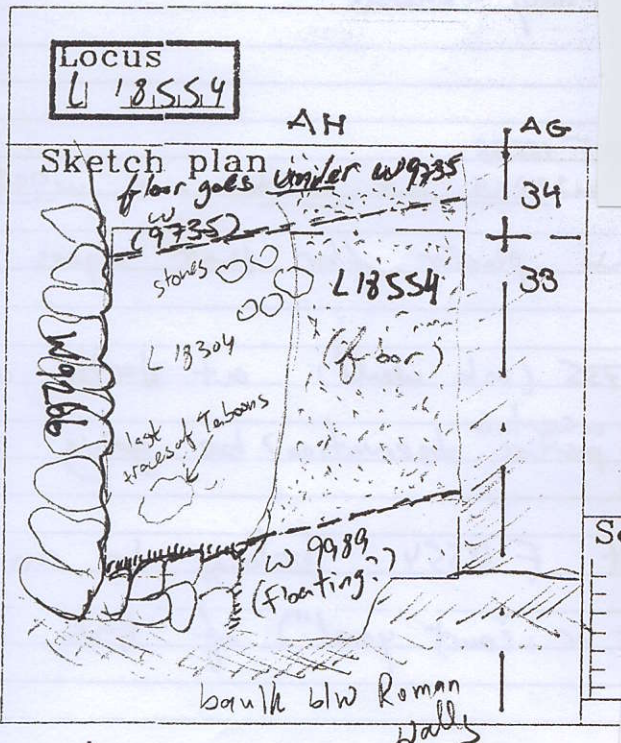 Locus
L 18554
AH
AG
Sketch plan
floor goes under W9735
34
(W
9735)
stones
L18554
33
(floor)
L 18304
W9266
last
traces of Taboons
W 9989
(floating?)
baulk b/w Roman
walls